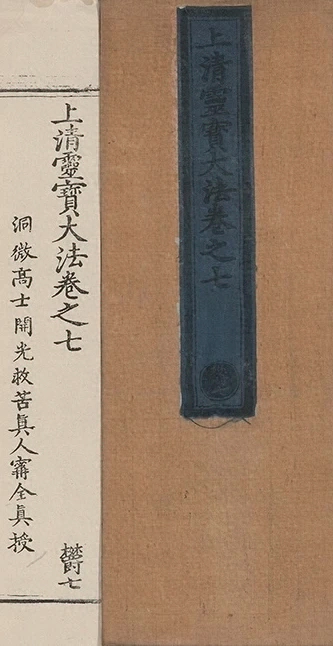 上清靈寶大法卷之七
上清靈寶大法卷之七
欝七
洞微高士開光救苦眞人甯全眞授